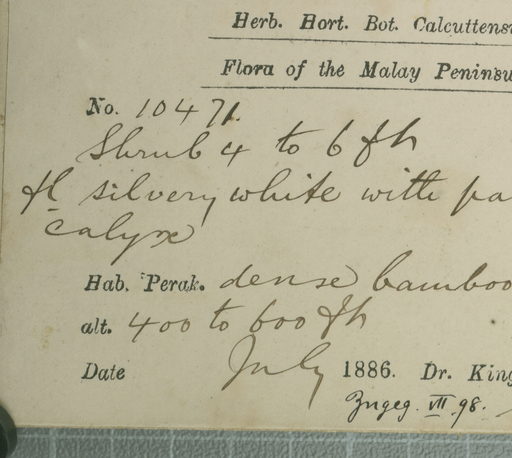 Herb. Hort. Bot. Calcuttens
Flora of the Malay Peninsu
No. 10471.
Shrub 4 to 6 ft
fl silvery white with pa
calyx
Hab. Perak. dense bamboo
alt. 400 to 600 ft
Date July 1886. Dr. King
Zngeg. VII. 98.